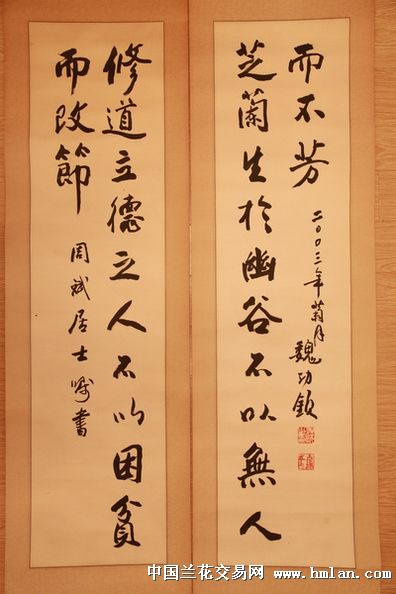 芝蘭生於幽谷不以無人
而不芳
二〇〇三年菊月
魏功欽
修道立德之人不以困貧
而改節
周斌居士囑書
中国兰花交易网 www.hmlan.com